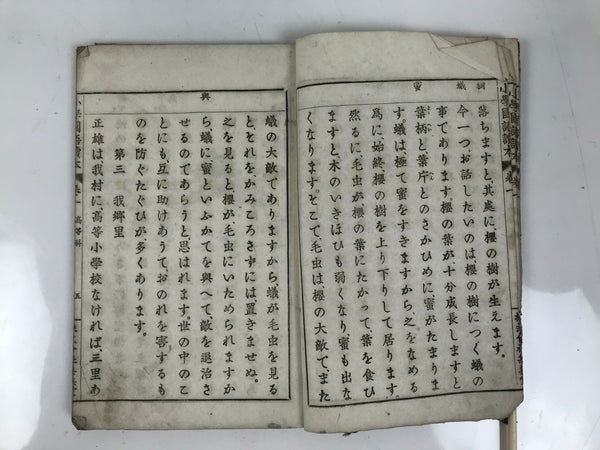 樹 蟻 蜜
落ちますと、其處に、櫻の樹が生えます。
今一つ、お話したいのは、櫻の樹につく蟻の
事であります。櫻の葉が、十分成長しますと
葉柄と葉片とのさかひめに蜜がたまりま
す。蟻は極て蜜をすきますから、之をなめる
爲に始終櫻の樹を上り下りして居ります。
然るに毛虫が櫻の葉にたかつて、葉を食ひ
ますと、水のいきほひも弱くなり蜜も出な
くなります。そこで、毛虫は、櫻の大敵で、また
與
蟻の大敵でありますから、蟻が毛虫を見る
とそれを、かみころさずには、置きませぬ。
之を見ると、櫻が毛虫にいためられますか
ら、蟻に蜜といふかてを與へて、敵を退治さ
せるのであらうと、思はれます。世の中のこ
とにも、互に助けあうて、おのれを害するも
のを防ぐたぐひが多くあります。
第三 我郷里
正雄は、我村に、高等小學校なければ、三里あ
小學國語讀本 卷一 高等科 五